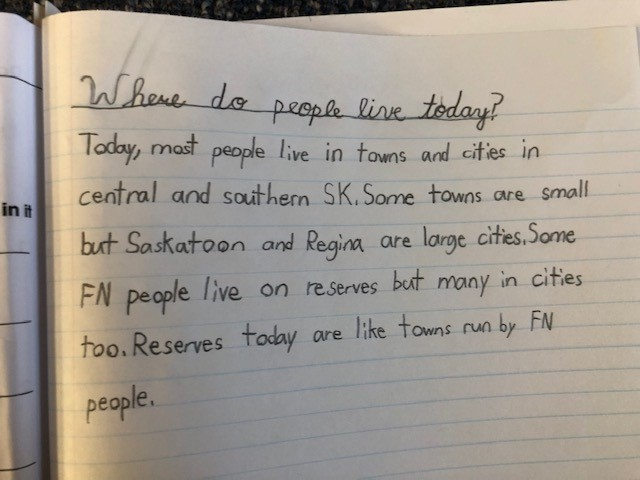 Where do people live today?
Today, most people live in towns and cities in
central and southern SK. Some towns are small
in it
but Saskatoon and Regina are large cities. Some
FN people live on reserves but many in cities
too. Reserves today are like towns run by FN
people.